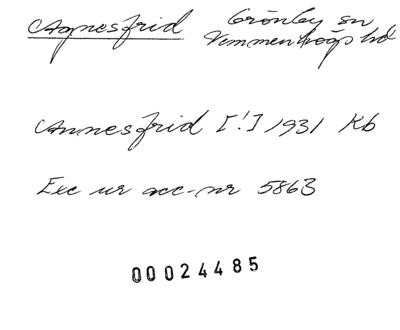 Agnesfrid Grönby sn
Vemmenhögs hd
Annesfrid [!] 1931 Kb
Exc ur acc-nr 5863
00024485